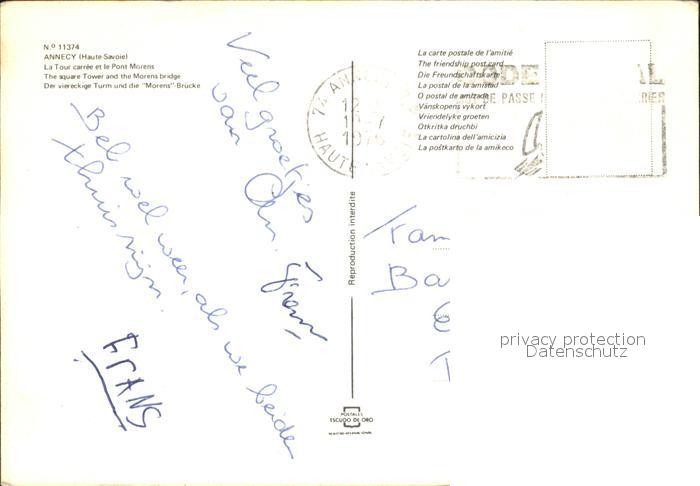 N.º 11374
ANNECY (Haute-Savoie)
La Tour carrée et le Pont Morens
The square Tower and the Morens bridge
Der viereckige Turm und die "Morens"-Brücke
Veel groetjes
van
Frans
Bel wel weer, als we beiden
thuis zijn.
FRANS
Reproduction interdite
POSTALES
ESCUDO DE ORO
74 ANNECY
1976
HAUTE SAVOIE
La carte postale de l'amitié
The friendship post card
Die Freundschaftskarte
La postal de la amistad
O postal de amizade
Vänskopens vykort
Vriendelyke groeten
Otkritka druchbi
La cartolina dell'amicizia
La poŝtkarto de la amikeco
CODE
AL
DE PASSE
Fam
Ba
privacy protection
Datenschutz